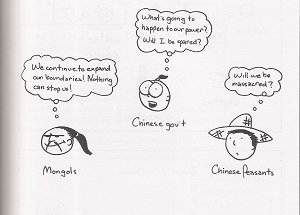 We continue to expand
our boundaries! Nothing
can stop us!
Mongols
What's going to
happen to our power?
Will I be spared?
Chinese gov't
Will we be
massacred?
Chinese Peasants